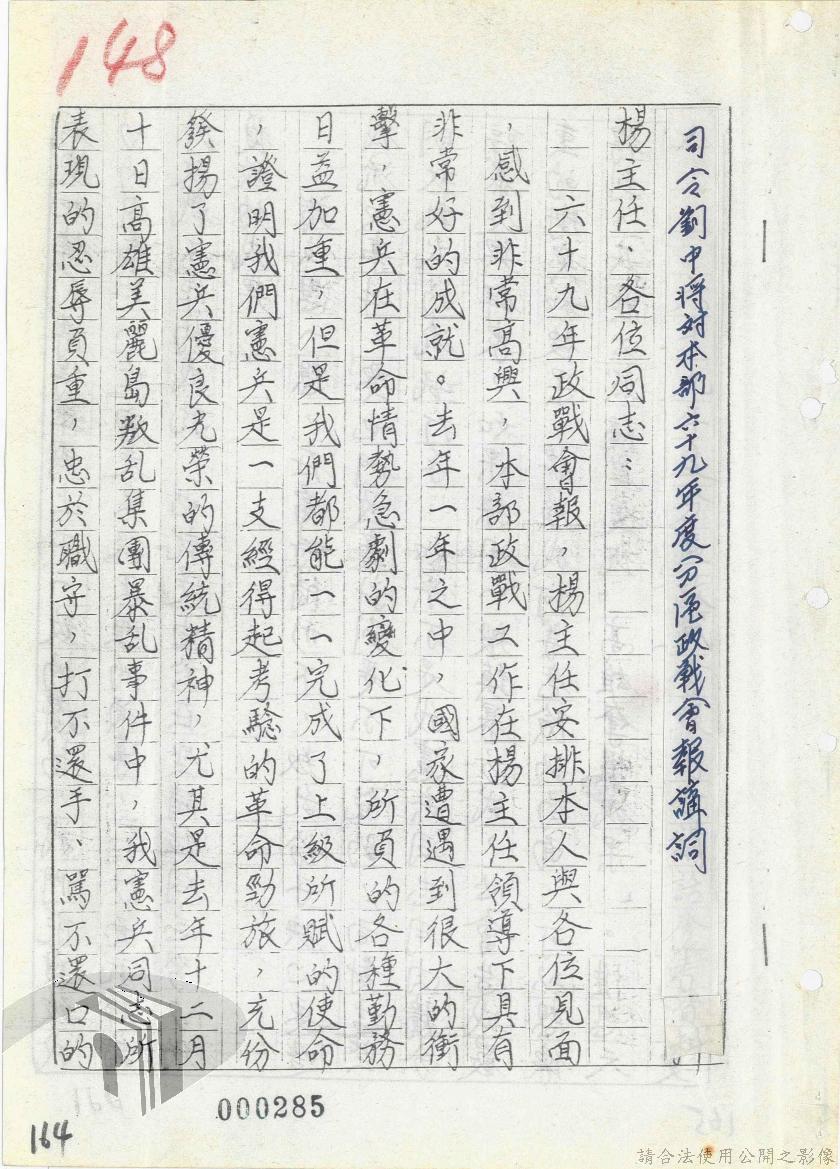 148
司令劉中將對本部六十九年度分區政戰會報講詞
楊主任、各位同志：
六十九年政戰會報，楊主任安排本人與各位見面
，感到非常高興，本部政戰工作在楊主任領導下具有
非常好的成就。去年一年之中，國家遭遇到很大的衝
擊，憲兵在革命情勢急劇的變化下，所負的各種勤務
日益加重，但是我們都能一一完成了上級所賦的使命
，證明我們憲兵是一支經得起考驗的革命勁旅，充份
發揚了憲兵優良光榮的傳統精神，尤其是去年十二月
十日高雄美麗島叛乱集團暴乱事件中，我憲兵同志所
表現的忍辱負重，忠於職守，打不還手、罵不還口的
000285
164
請合法使用公開之影像